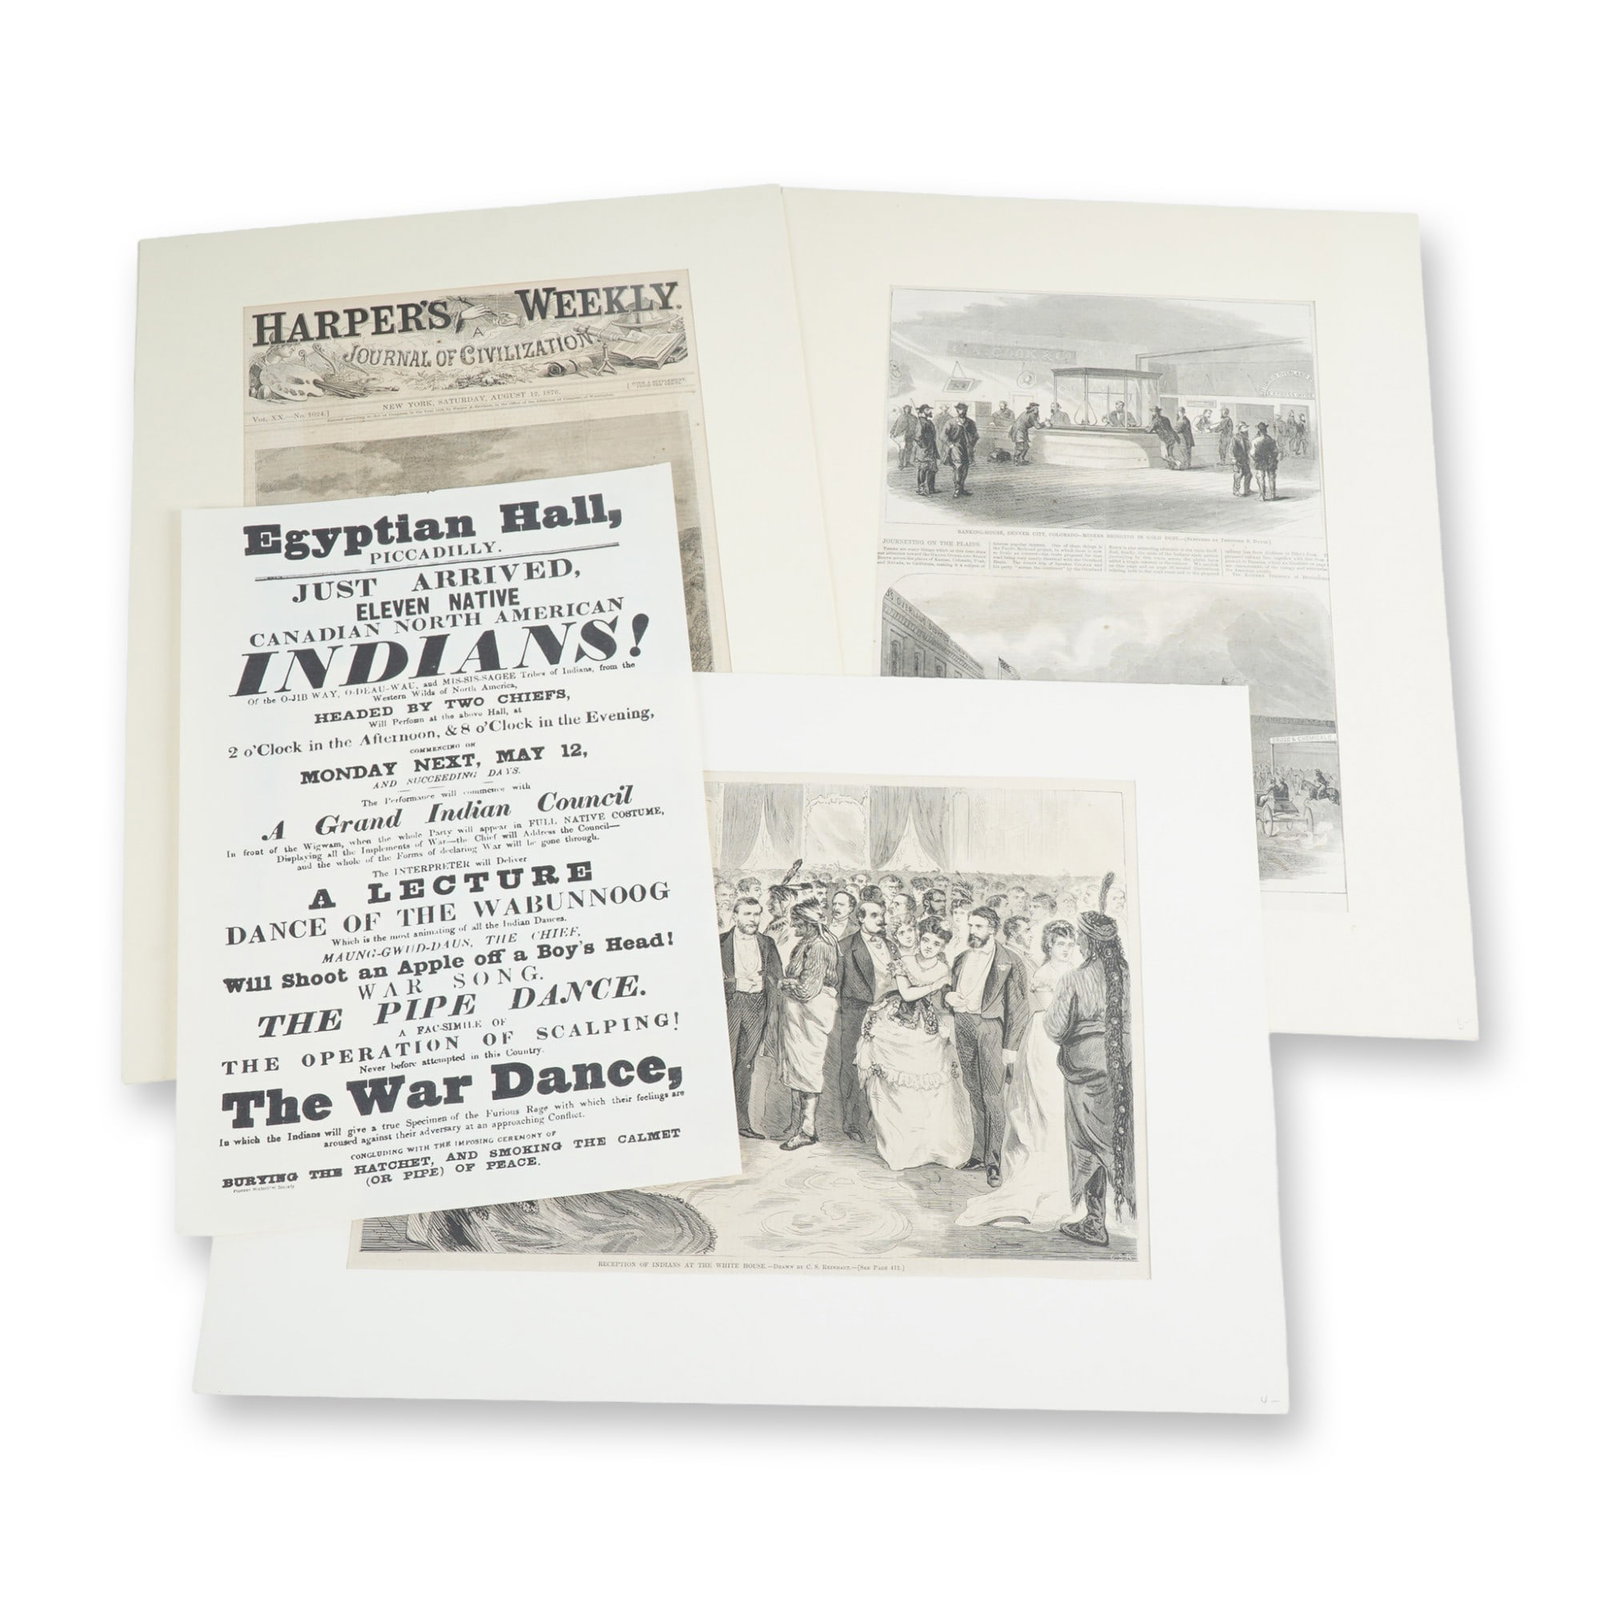 HARPER'S WEEKLY.
A
JOURNAL OF CIVILIZATION
Vol. XX.—No. 1024.]
NEW YORK, SATURDAY, AUGUST 12, 1876.
[WITH A SUPPLEMENT
Egyptian Hall,
PICCADILLY.
JUST ARRIVED,
ELEVEN NATIVE
CANADIAN NORTH AMERICAN
INDIANS!
Of the O-JIB WAY, O-DEAU-WAU, and MIS-SIS-SAGEE Tribes of Indians, from the
Western Wilds of North America,
HEADED BY TWO CHIEFS,
Will Perform at the above Hall, at
2 o'Clock in the Afternoon, & 8 o'Clock in the Evening,
COMMENCING ON
MONDAY NEXT, MAY 12,
AND SUCCEEDING DAYS.
The Performance will commence with
A Grand Indian Council
In front of the Wigwam, when the whole Party will appear in FULL NATIVE COSTUME,
Displaying all the Implements of War—the Chief will Address the Council—
and the whole of the Forms of declaring War will be gone through.
The INTERPRETER will Deliver
A LECTURE
DANCE OF THE WABUNNOOG
Which is the most animating of all the Indian Dances.
MAUNG-GWUD-DAUS, THE CHIEF,
Will Shoot an Apple off a Boy's Head!
WAR SONG.
THE PIPE DANCE.
A FAC-SIMILE OF
THE OPERATION OF SCALPING!
Never before attempted in this Country.
The War Dance,
In which the Indians will give a true Specimen of the Furious Rage with which their feelings are
aroused against their adversary at an approaching Conflict.
CONCLUDING WITH THE IMPOSING CEREMONY OF
BURYING THE HATCHET, AND SMOKING THE CALMET
(OR PIPE) OF PEACE.
Pioneer Historical Society
BANKING-HOUSE, DENVER CITY, COLORADO—MINERS BRINGING IN GOLD DUST.—[SKETCHED BY THEODORE R. DAVIS.]
JOURNEYING ON THE PLAINS.
DRUGS & CHEMICALS
RECEPTION OF INDIANS AT THE WHITE HOUSE.—DRAWN BY C. S. REINHART.—[SEE PAGE 411.]